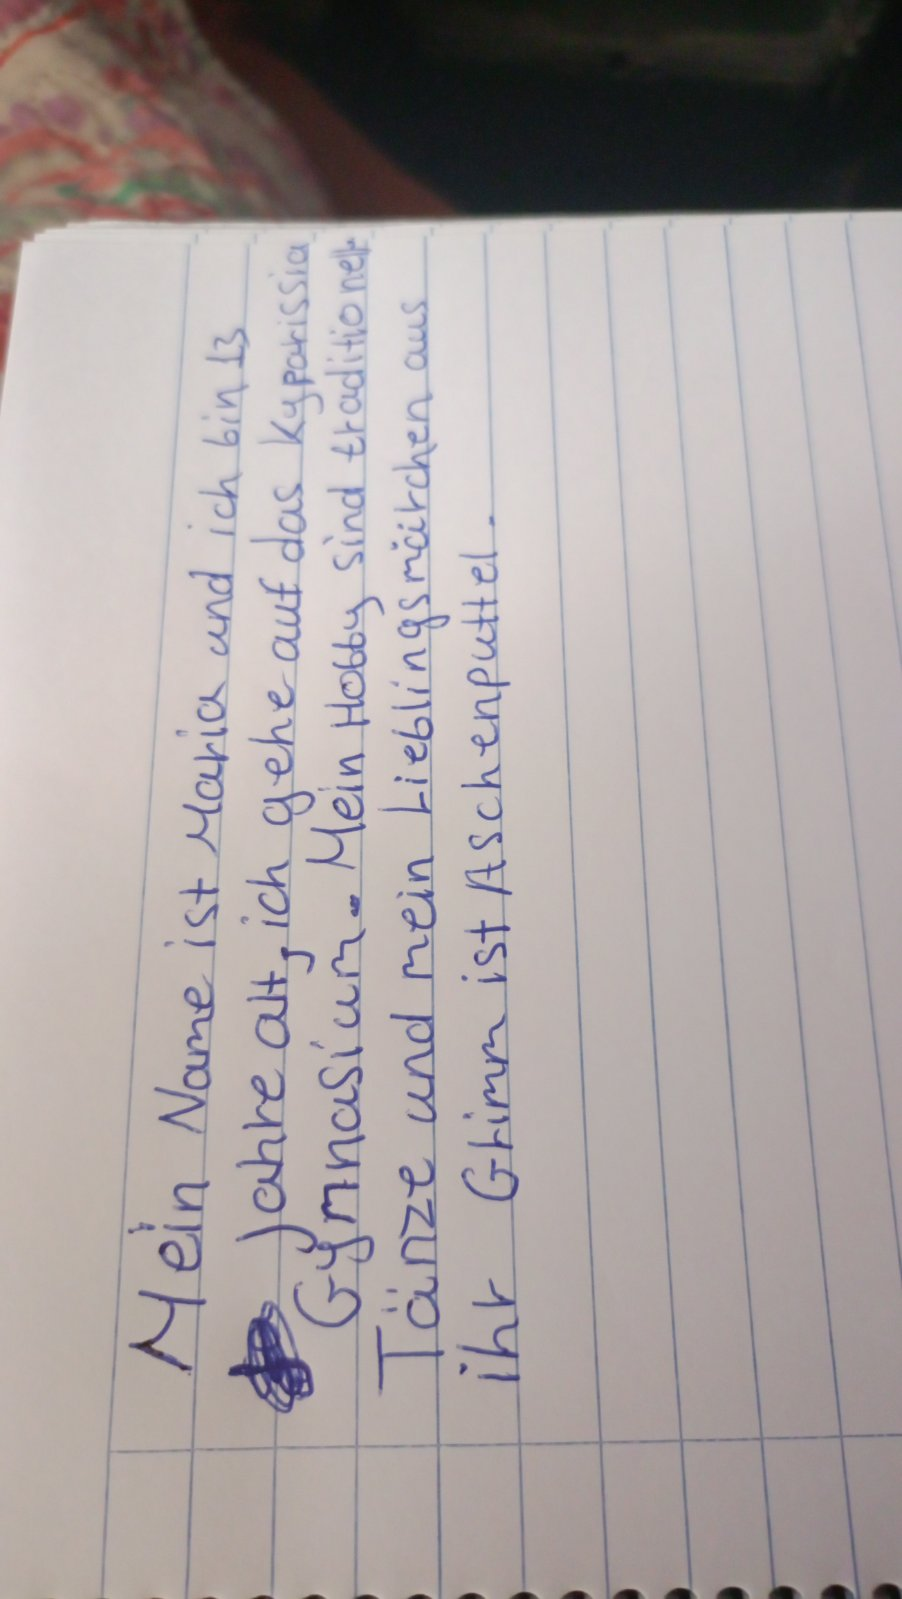 Mein Name ist Maria und ich bin 13
Jahre alt, ich gehe auf das Kyparissia
Gymnasium. Mein Hobby sind traditionelt
Tänze und mein Lieblingsmärchen aus
ihr Grimm ist Aschenputtel.